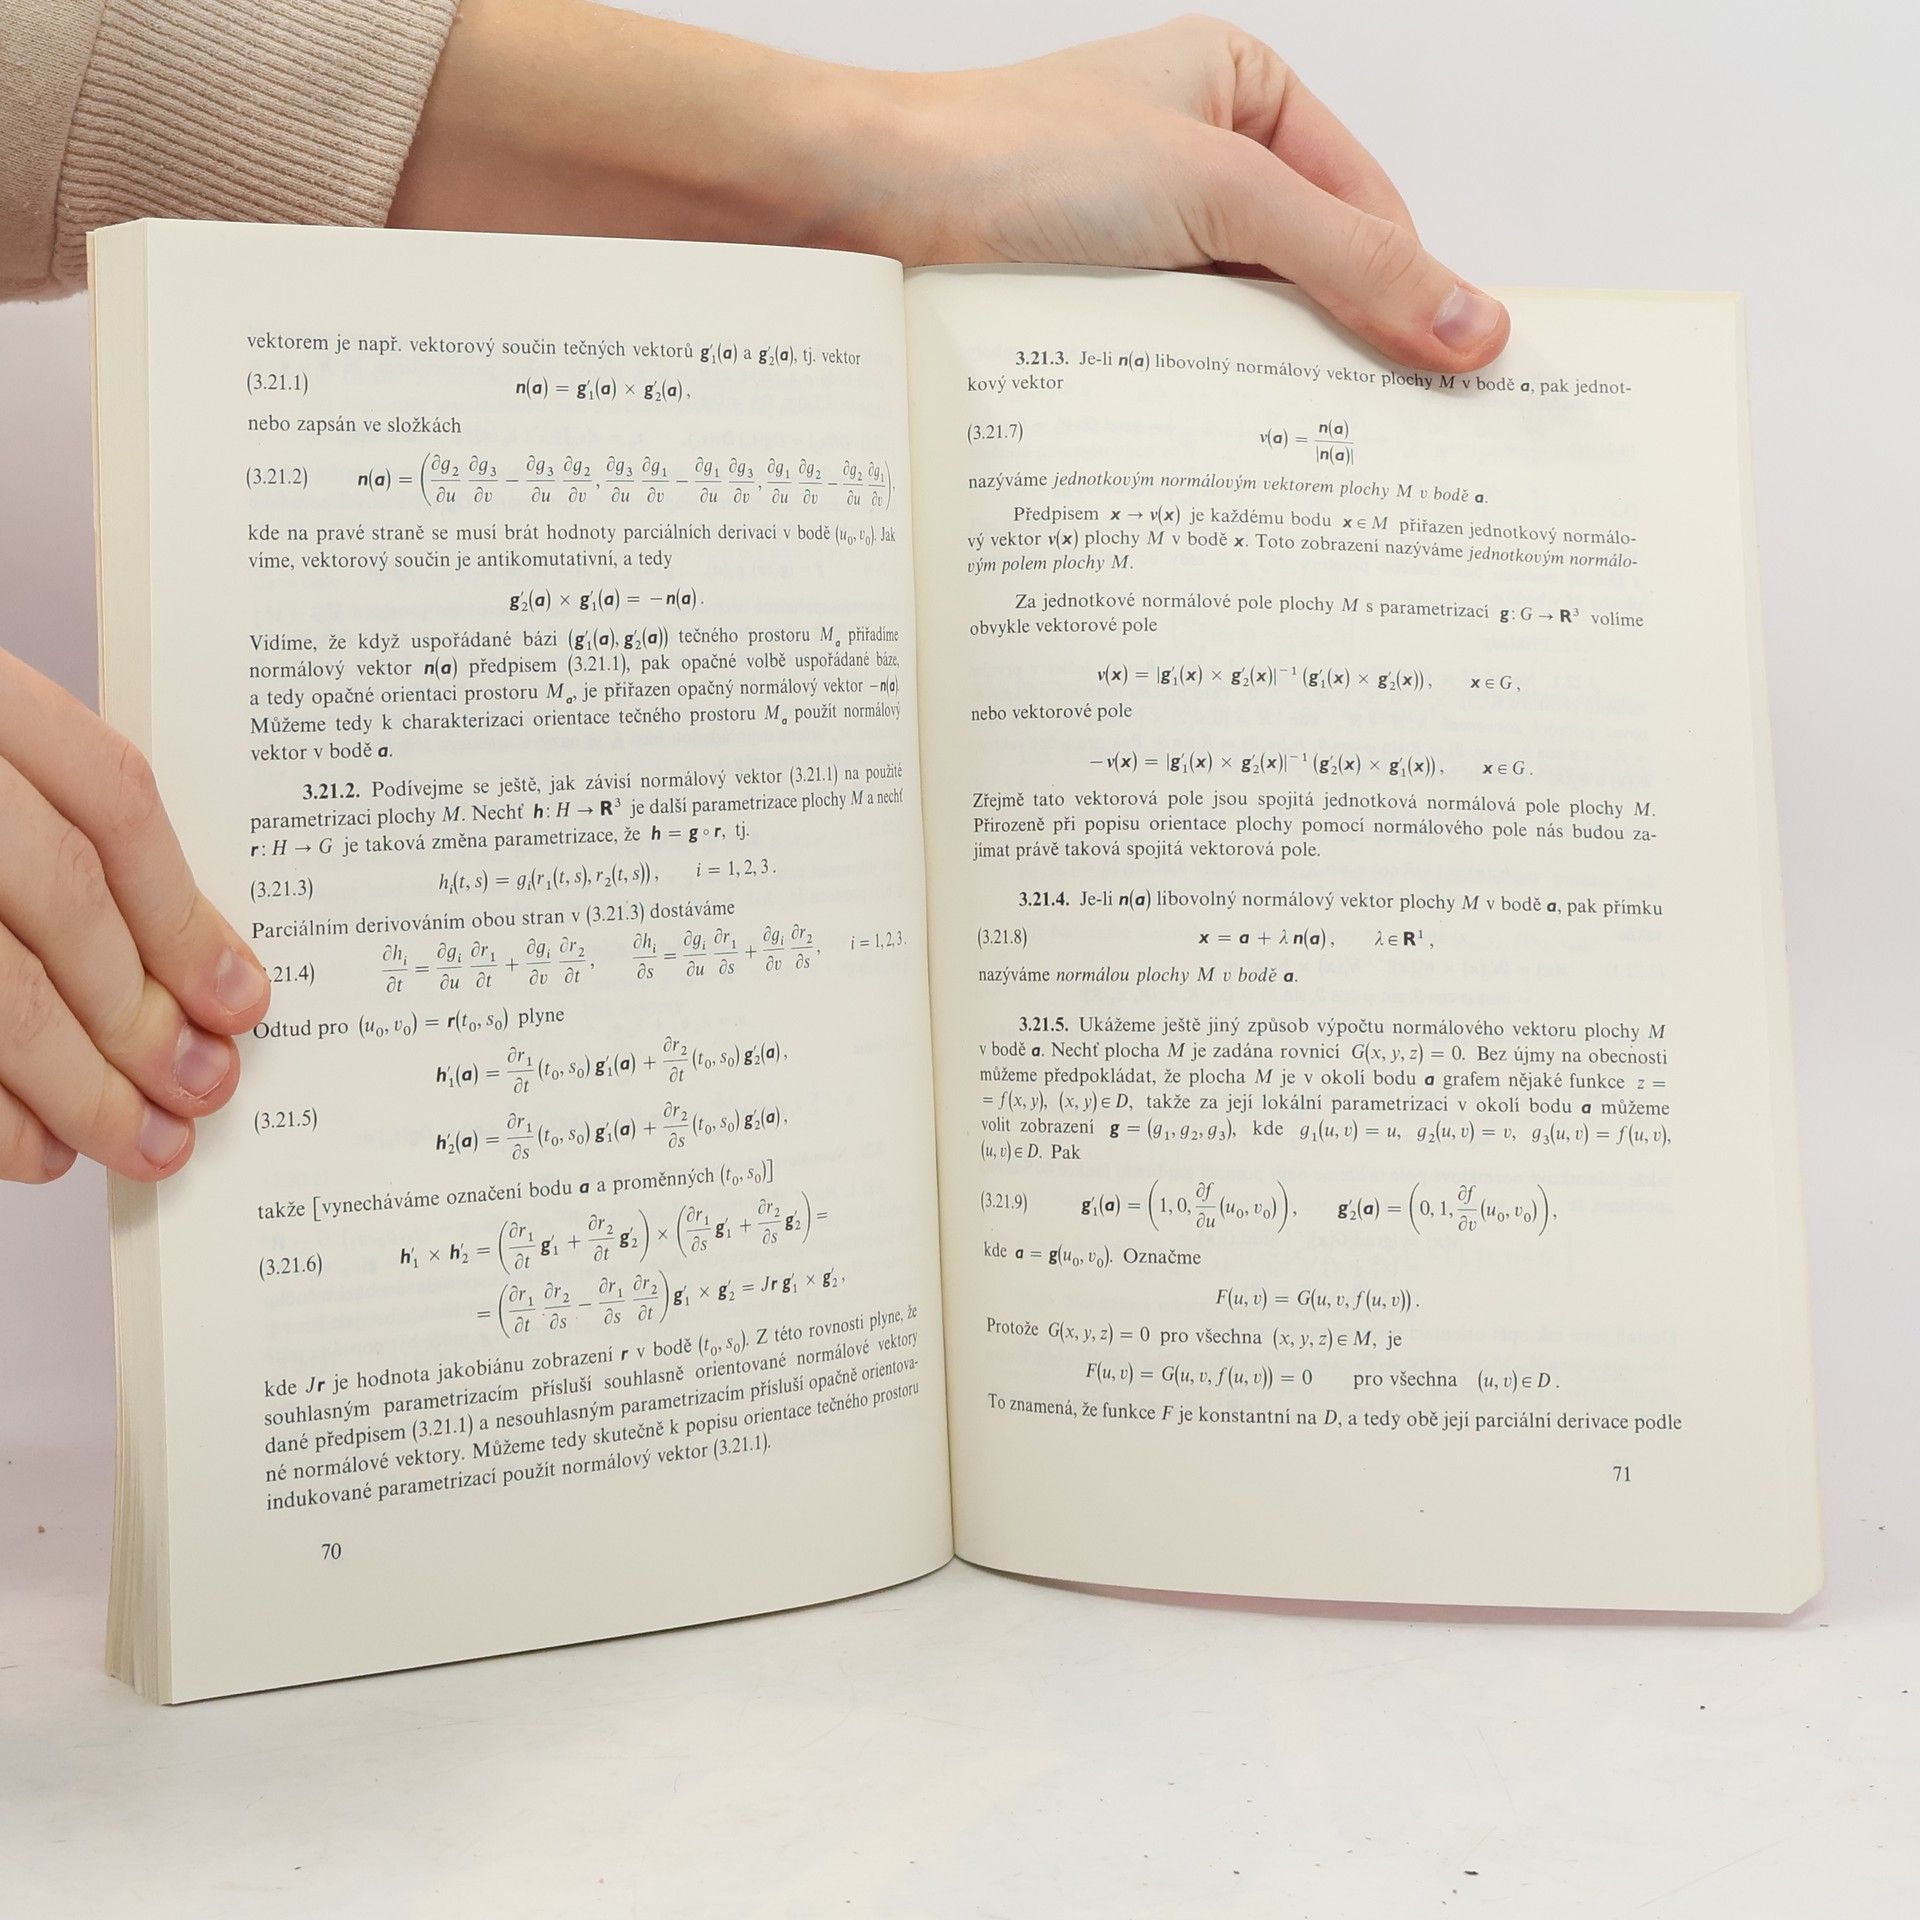 vektorem je např. vektorový součin tečných vektorů g′₁(a) a g′₂(a), tj. vektor
(3.21.1) n(a) = g′₁(a) × g′₂(a),
nebo zapsán ve složkách
(3.21.2) n(a) = (∂g₂/∂u ∂g₃/∂v − ∂g₃/∂u ∂g₂/∂v, ∂g₃/∂u ∂g₁/∂v − ∂g₁/∂u ∂g₃/∂v, ∂g₁/∂u ∂g₂/∂v − ∂g₂/∂u ∂g₁/∂v),
kde na pravé straně se musí brát hodnoty parciálních derivací v bodě (u₀, v₀). Jak
víme, vektorový součin je antikomutativní, a tedy
g′₂(a) × g′₁(a) = −n(a).
Vidíme, že když uspořádané bázi (g′₁(a), g′₂(a)) tečného prostoru Mₐ přiřadíme
normálový vektor n(a) předpisem (3.21.1), pak opačné volbě uspořádané báze,
a tedy opačné orientaci prostoru Mₐ, je přiřazen opačný normálový vektor −n(a).
Můžeme tedy k charakterizaci orientace tečného prostoru Mₐ použít normálový
vektor v bodě a.
3.21.2. Podívejme se ještě, jak závisí normálový vektor (3.21.1) na použité
parametrizaci plochy M. Nechť h: H → R³ je další parametrizace plochy M a nechť
r: H → G je taková změna parametrizace, že h = g ∘ r, tj.
(3.21.3) hᵢ(t, s) = gᵢ(r₁(t, s), r₂(t, s)), i = 1, 2, 3.
Parciálním derivováním obou stran v (3.21.3) dostáváme
.21.4) ∂hᵢ/∂t = ∂gᵢ/∂u ∂r₁/∂t + ∂gᵢ/∂v ∂r₂/∂t, ∂hᵢ/∂s = ∂gᵢ/∂u ∂r₁/∂s + ∂gᵢ/∂v ∂r₂/∂s, i = 1, 2, 3.
Odtud pro (u₀, v₀) = r(t₀, s₀) plyne
h′₁(a) = ∂r₁/∂t (t₀, s₀) g′₁(a) + ∂r₂/∂t (t₀, s₀) g′₂(a),
(3.21.5)
h′₂(a) = ∂r₁/∂s (t₀, s₀) g′₁(a) + ∂r₂/∂s (t₀, s₀) g′₂(a),
takže [vynecháváme označení bodu a a proměnných (t₀, s₀)]
(3.21.6) h′₁ × h′₂ = (∂r₁/∂t g′₁ + ∂r₂/∂t g′₂) × (∂r₁/∂s g′₁ + ∂r₂/∂s g′₂) =
= (∂r₁/∂t ∂r₂/∂s − ∂r₁/∂s ∂r₂/∂t) g′₁ × g′₂ = Jr g′₁ × g′₂,
kde Jr je hodnota jakobiánu zobrazení r v bodě (t₀, s₀). Z této rovnosti plyne, že
souhlasným parametrizacím přísluší souhlasně orientované normálové vektory
dané předpisem (3.21.1) a nesouhlasným parametrizacím přísluší opačně orientova-
né normálové vektory. Můžeme tedy skutečně k popisu orientace tečného prostoru
indukované parametrizací použít normálový vektor (3.21.1).
70
3.21.3. Je-li n(a) libovolný normálový vektor plochy M v bodě a, pak jednot-
kový vektor
(3.21.7) ν(a) = n(a)/|n(a)|
nazýváme jednotkovým normálovým vektorem plochy M v bodě a.
Předpisem x → ν(x) je každému bodu x ∈ M přiřazen jednotkový normálo-
vý vektor ν(x) plochy M v bodě x. Toto zobrazení nazýváme jednotkovým normálo-
vým polem plochy M.
Za jednotkové normálové pole plochy M s parametrizací g: G → R³ volíme
obvykle vektorové pole
ν(x) = |g′₁(x) × g′₂(x)|⁻¹ (g′₁(x) × g′₂(x)), x ∈ G,
nebo vektorové pole
−ν(x) = |g′₁(x) × g′₂(x)|⁻¹ (g′₂(x) × g′₁(x)), x ∈ G.
Zřejmě tato vektorová pole jsou spojitá jednotková normálová pole plochy M.
Přirozeně při popisu orientace plochy pomocí normálového pole nás budou za-
jímat právě taková spojitá vektorová pole.
3.21.4. Je-li n(a) libovolný normálový vektor plochy M v bodě a, pak přímku
(3.21.8) x = a + λ n(a), λ ∈ R¹,
nazýváme normálou plochy M v bodě a.
3.21.5. Ukážeme ještě jiný způsob výpočtu normálového vektoru plochy M
v bodě a. Nechť plocha M je zadána rovnicí G(x, y, z) = 0. Bez újmy na obecnosti
můžeme předpokládat, že plocha M je v okolí bodu a grafem nějaké funkce z =
= f(x, y), (x, y) ∈ D, takže za její lokální parametrizaci v okolí bodu a můžeme
volit zobrazení g = (g₁, g₂, g₃), kde g₁(u, v) = u, g₂(u, v) = v, g₃(u, v) = f(u, v),
(u, v) ∈ D. Pak
(3.21.9) g′₁(a) = (1, 0, ∂f/∂u (u₀, v₀)), g′₂(a) = (0, 1, ∂f/∂v (u₀, v₀)),
kde a = g(u₀, v₀). Označme
F(u, v) = G(u, v, f(u, v)).
Protože G(x, y, z) = 0 pro všechna (x, y, z) ∈ M, je
F(u, v) = G(u, v, f(u, v)) = 0 pro všechna (u, v) ∈ D.
To znamená, že funkce F je konstantní na D, a tedy obě její parciální derivace podle
71